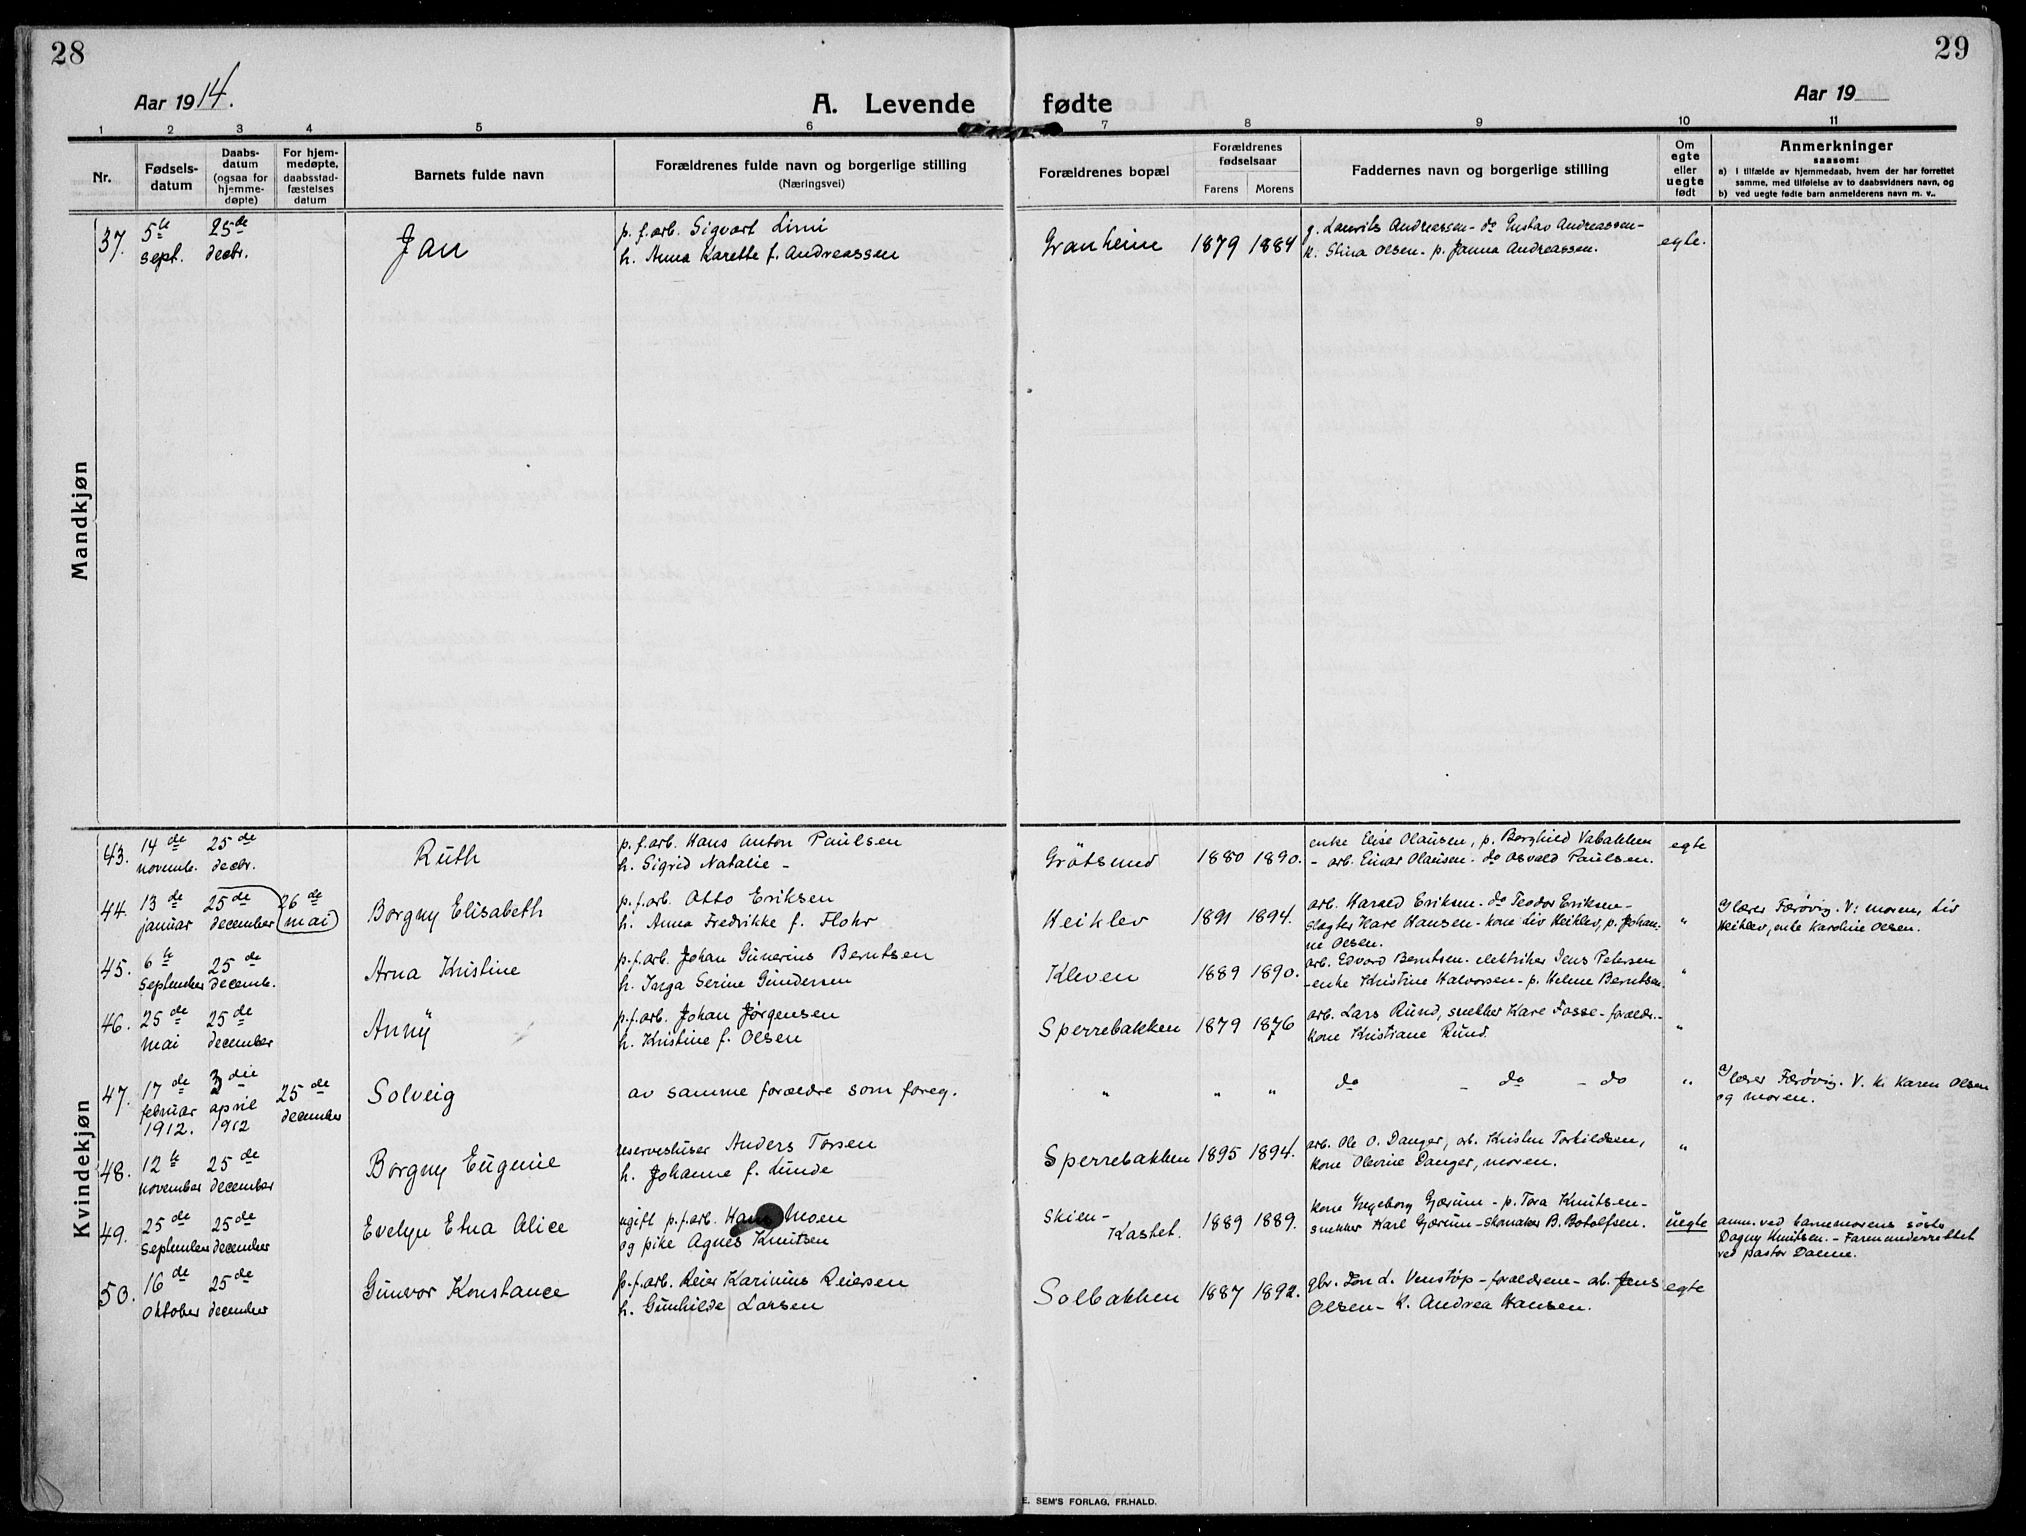 28
29
Aar 1914.
A. Levende fødte
Aar 19
1 2 3 4 5 6 7 8 9 10 11
Nr.
Fødsels-
datum
Daabs-
datum
(ogsaa for
hjemme-
døpte)
For hjem-
medøpte,
daabsstad-
fæstelses
datum
Barnets fulde navn
Forældrenes fulde navn og borgerlige stilling
(Næringsvei)
Forældrenes bopæl
Forældrenes
fødselsaar
Farens Morens
Faddernes navn og borgerlige stilling
Om
egte
eller
uegte
født
Anmerkninger
saasom:
a) I tilfælde av hjemmedaab, hvem der har forrettet
samme, med tilføielse av to daabsvidners navn, og
b) ved uegte fødte barn anmelderens navn m. v..
Mandkjøn
37.
5te
sept.
25de
decbr.
Jan
p. f.arb. Sigvart Limi
h. Anna Karette f. Andreassen
Granheim
1879 1884
g. Laurits Andreassen - do Gustav Andreassen -
k. Stina Olsen - p. Janna Andreassen.
egte.
Kvindekjøn
43.
14de
novemb.
25de
decbr.
Ruth
p. f.arb. Hans Anton Paulsen
h. Sigrid Natalie -
Grøtsund
1880 1890.
enke Elise Olausen, p. Borghild Vabakken
- arb. Einar Olausen - do Osvald Paulsen.
egte
44.
13de
januar
25de
december
26de
mai
Borgny Elisabeth
p. f. arb. Otto Eriksen
h. Anna Fredrikke f. Flohr
Heiklev
1891 1894.
arb. Harald Eriksen - do Teodor Eriksen -
slagter Kare Hansen - kone Liv Heiklev, p. Johan-
ne Olsen.
"
a/ lærer Færøvig. V: moren, Liv
Heiklev, enke Karoline Olsen.
45.
6te
september
25de
decemb.
Arna Kristine
p. f. arb. Johan Gunerius Berntsen
h. Inga Serine Gundersen
Kleven
1889 1890.
arb. Edvard Berntsen - elektriker Jens Petersen
- enke Kristine Halvorsen - p. Helene Berntsen
"
46.
25de
mai
25de
december
Anny
p. f. arb. Johan Jørgensen
h. Kristine f. Olsen
Sperrebakken
1879 1876
arb. Lars Rund, snekker Kare Fosse - foreldr. -
kone Kristiane Rund.
"
47.
17de
februar
1912.
3die
april
1912
25de
december
Solveig
av samme forældre som foreg.
" " "
do - do - do
"
a/ lærer Færøvig. V. k. Karen Olsen
og moren.
48.
12te
november
25de
december
Borgny Eugenie
reservesliser Anders Torsen
h. Johanne f. Lunde
Sperrebakken
1895 1894.
arb. Ole O. Danger, arb. Kristen Torkildsen,
kone Olevine Danger, moren.
"
49.
25de
september
25de
december
Evelyn Etna Alice
ugift p. f. arb. Hans Moen
og pike Agnes Knutsen
Skien -
Kastet.
1889 1889.
kone Ingeborg Gjærum - p. Tora Knutsen -
snekker Karl Gjærum - skomaker B. Botolfsen.
uegte
anm. ved barnemorens søster
Dagny Knutsen. - Faren underrettet
ved pastor Danne.
50.
16de
oktober
25de
december
Gunvor Konstance
p. f. arb. Reier Karinius Reiersen
h. Gunhilde Larsen
Solbakken
1887 1892.
gbr. Jon L. Venstøp - forældrene - arb. Jens
Olsen - K. Andrea Hansen.
egte
E. SEM'S FORLAG, FR.HALD.